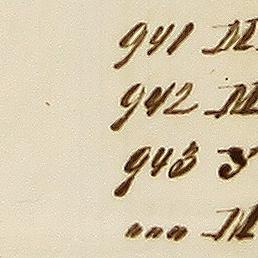 941 M
942 M
943 S
" " " M